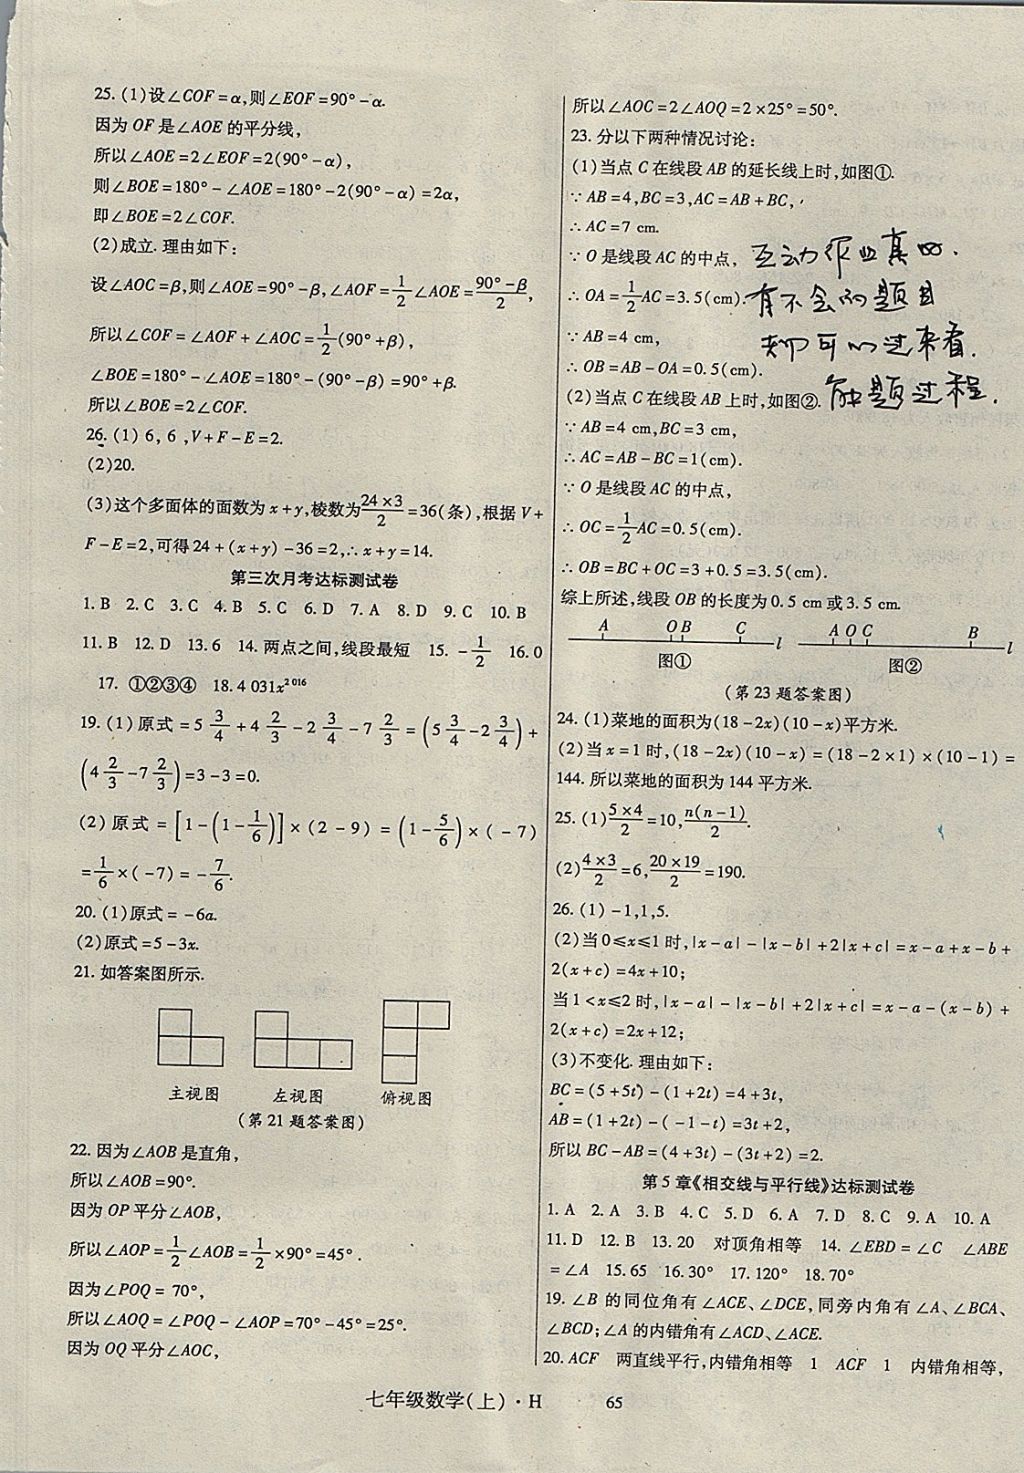 25. (1)设∠COF=α,则∠EOF=90°-α.
因为 OF 是∠AOE 的平分线，
所以∠AOE=2∠EOF=2(90°-α)，
则∠BOE=180°-∠AOE=180°-2(90°-α)=2α,
即∠BOE=2∠COF.
(2)成立. 理由如下：
设∠AOC=β,则∠AOE=90°-β,∠AOF=1/2∠AOE=(90°-β)/2,
所以∠COF=∠AOF+∠AOC=1/2(90°+β)，
∠BOE=180°-∠AOE=180°-(90°-β)=90°+β.
所以∠BOE=2∠COF.
26. (1) 6, 6 ,V+F-E=2.
(2)20.
(3)这个多面体的面数为 x+y,棱数为(24×3)/2=36(条),根据 V+
F-E=2,可得24+(x+y)-36=2,∴x+y=14.
第三次月考达标测试卷
1. B 2. C 3. C 4. B 5. C 6. D 7. A 8. D 9. C 10. B
11. B 12. D 13. 6 14. 两点之间,线段最短 15. -1/2 16. 0
17. ①②③④ 18. 4 031x^2 016
19. (1)原式=5 3/4+4 2/3-2 3/4-7 2/3=(5 3/4-2 3/4)+
(4 2/3-7 2/3)=3-3=0.
(2)原式=[1-(1-1/6)]×(2-9)=(1-5/6)×(-7)
=1/6×(-7)=-7/6.
20. (1)原式=-6a.
(2)原式=5-3x.
21. 如答案图所示.
主视图 左视图 俯视图
(第21题答案图)
22. 因为∠AOB 是直角，
所以∠AOB=90°.
因为 OP 平分∠AOB,
所以∠AOP=1/2∠AOB=1/2×90°=45°.
因为∠POQ=70°,
所以∠AOQ=∠POQ-∠AOP=70°-45°=25°.
因为 OQ 平分∠AOC,
所以∠AOC=2∠AOQ=2×25°=50°.
23. 分以下两种情况讨论：
(1)当点 C 在线段 AB 的延长线上时,如图①.
∵AB=4,BC=3,AC=AB+BC,
∴AC=7 cm.
∵O 是线段 AC 的中点，
∴OA=1/2AC=3.5(cm).
∵AB=4 cm,
∴OB=AB-OA=0.5(cm).
(2)当点 C 在线段 AB 上时,如图②.
∵AB=4 cm,BC=3 cm,
∴AC=AB-BC=1(cm).
∵O 是线段 AC 的中点，
∴OC=1/2AC=0.5(cm).
∴OB=BC+OC=3+0.5=3.5(cm).
综上所述,线段 OB 的长度为 0.5 cm 或 3.5 cm.
互动作业真的.
有不会的题目
都可以过来看.
解题过程.
A O B C l A O C B l
图① 图②
(第23题答案图)
24. (1)菜地的面积为(18-2x)(10-x)平方米.
(2)当 x=1 时,(18-2x)(10-x)=(18-2×1)×(10-1)=
144. 所以菜地的面积为 144 平方米.
25. (1)(5×4)/2=10,n(n-1)/2.
(2)(4×3)/2=6,(20×19)/2=190.
26. (1)-1,1,5.
(2)当0≤x≤1时,|x-a|-|x-b|+2|x+c|=x-a+x-b+
2(x+c)=4x+10;
当1<x≤2时,|x-a|-|x-b|+2|x+c|=x-a-(x-b)+
2(x+c)=2x+12;
(3)不变化. 理由如下：
BC=(5+5t)-(1+2t)=4+3t,
AB=(1+2t)-(-1-t)=3t+2,
所以 BC-AB=(4+3t)-(3t+2)=2.
第 5 章《相交线与平行线》达标测试卷
1. A 2. A 3. B 4. C 5. D 6. A 7. D 8. C 9. A 10. A
11. D 12. B 13. 20 对顶角相等 14. ∠EBD=∠C ∠ABE
=∠A 15. 65 16. 30° 17. 120° 18. 70°
19. ∠B 的同位角有∠ACE、∠DCE,同旁内角有∠A、∠BCA、
∠BCD;∠A 的内错角有∠ACD、∠ACE.
20. ACF 两直线平行,内错角相等 1 ACF 1 内错角相等,
七年级数学(上)·H 65